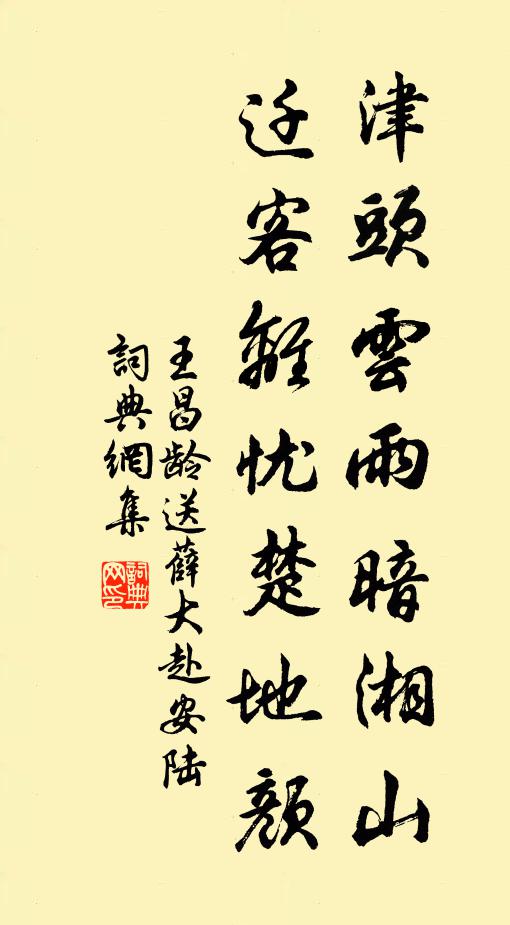 津頭雲雨暗湘山
迁客離忧楚地顔
王昌龄送薛大赴安陆
詞典網集
詞典网印